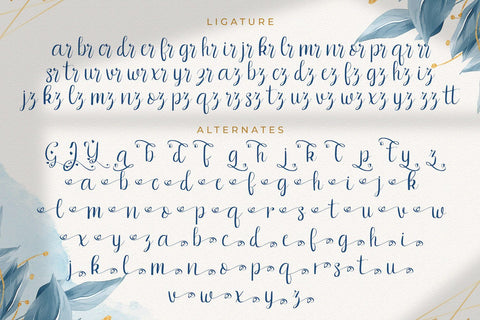 LIGATURE
ar br cr dr er fr gr hr ir jr kr lr mr nr or pr qr rr
sr tr ur vr wr xr yr zr az bz cz dz ez fz gz hz iz
jz kz lz mz nz oz pz qz rz sz tz uz vz wz xz yz zz tt
ALTERNATES
G J Y q b d f g h j k l p t y z
a b c d e f g h i j k
l m n o p q r s t u v w
x y z a b c d e f g h i
j k l m n o p q r s t u
v w x y z